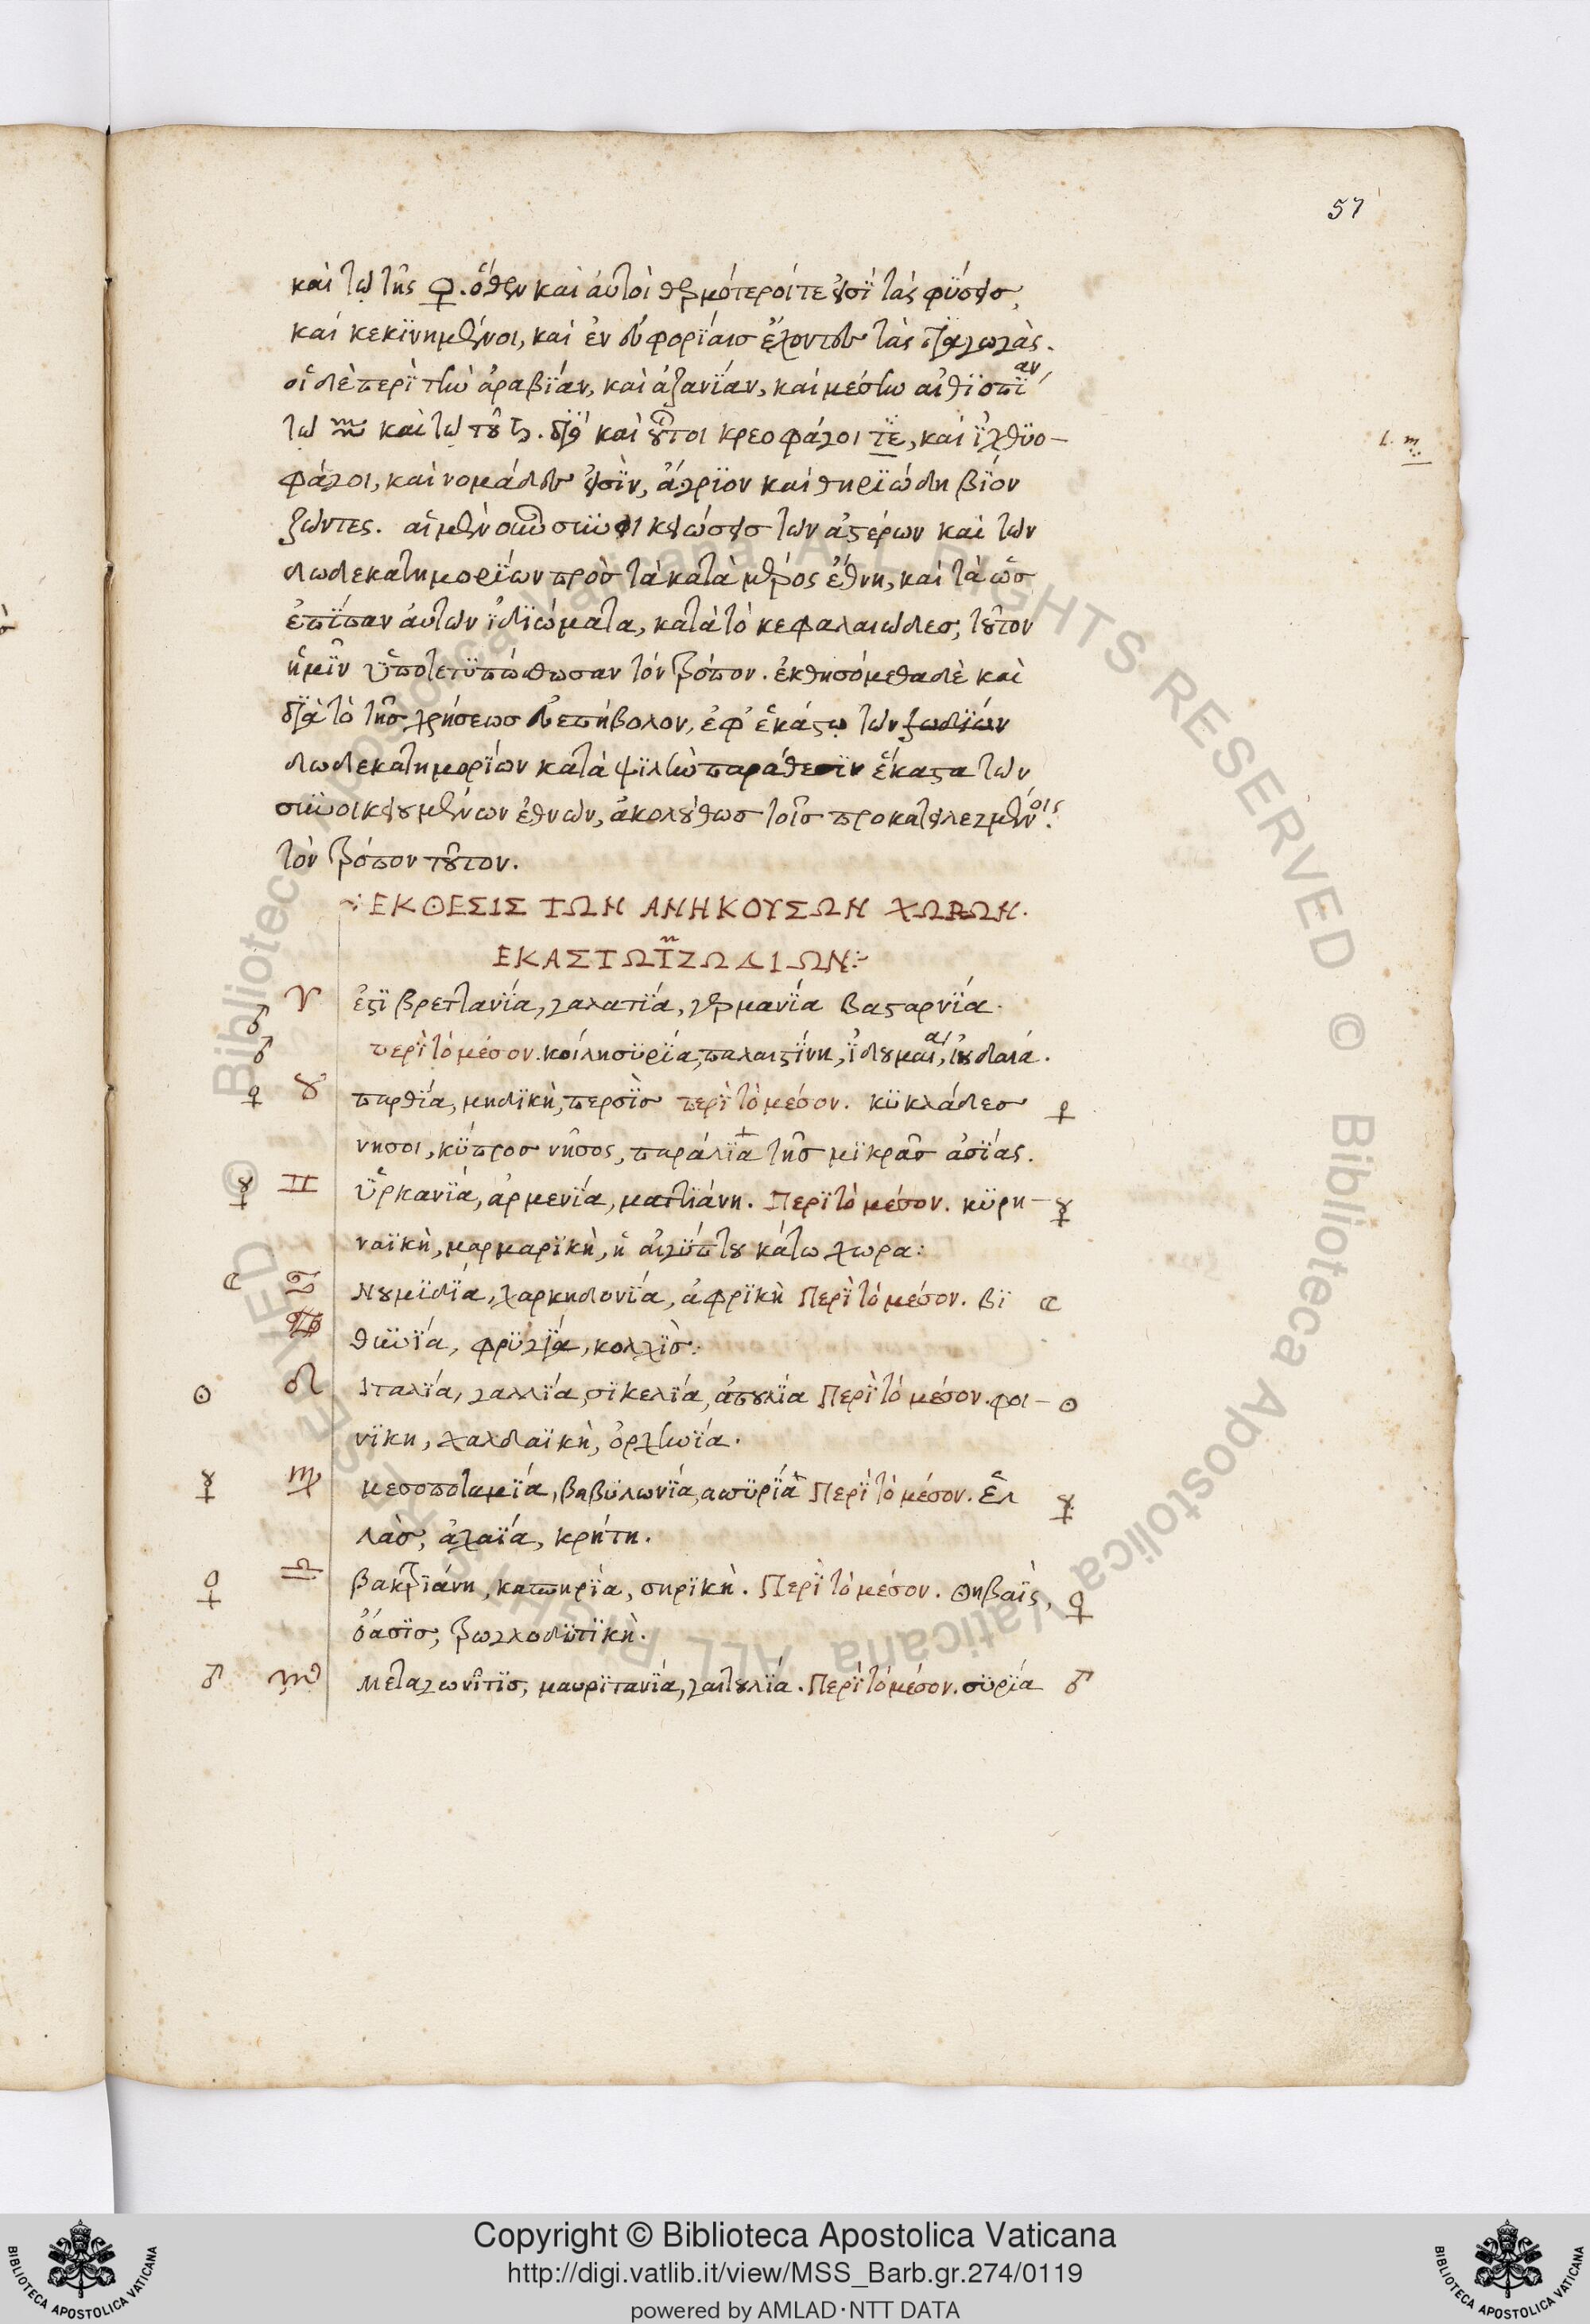 57
καὶ τῷ τῆς ♀. ὅθεν καὶ αὐτοὶ θερμότεροί τε εἰσὶ τὰς φύσεις,
καὶ κεκινημένοι, καὶ ἐν εὐφορίαις ἔχοντες τὰς διαγωγὰς.
οἱ δὲ περὶ τὴν ἀραβίαν, καὶ ἀζανίαν, καὶ μέσην αἰθιοπίαν,
τῷ καὶ τῷ τοῦ ♄. διὸ καὶ οὗτοι κρεοφάγοι τε, καὶ ἰχθυο-
L. m
φάγοι, καὶ νομάδες εἰσὶν, ἄγριον καὶ θηριώδη βίον
ζῶντες. αἱ μὲν οὖν συνοικειώσεις τῶν ἀστέρων καὶ τῶν
δωδεκατημορίων πρὸς τὰ κατὰ μέρος ἔθνη, καὶ τὰ ὡς
ἐπίπαν αὐτῶν ἰδιώματα, κατὰ τὸ κεφαλαιῶδες, τοῦτον
ἡμῖν ὑποτετυπώσθωσαν τὸν τρόπον. ἐκθησόμεθα δὲ καὶ
διὰ τὸ τῆς χρήσεως εὐεπήβολον, ἐφ' ἑκάστῳ τῶν ζωδίων
δωδεκατημορίων κατὰ ψιλὴν παράθεσιν ἕκαστα τῶν
συνοικειουμένων ἐθνῶν, ἀκολούθως τοῖς προκατειλεγμένοις.
τὸν τρόπον τοῦτον.
ΕΚΘΕΣΙΣ ΤΩΝ ΑΝΗΚΟΥΣΩΝ ΧΩΡΩΝ.
ΕΚΑΣΤΩ ΤῶΝ ΖΩΔΙΩΝ:-
♂ ♈ ἐστὶ βρεττανία, γαλατία, γερμανία βασταρνία.
♂ περὶ τὸ μέσον. κοίλη συρία, παλαιστίνη, ἰδουμαία, ἰουδαιά.
♀ ♉ παρθία, μηδικὴ, περσὶς περὶ τὸ μέσον. κυκλάδες ♀
νησοι, κύπρος νῆσος, παράλια τῆς μικρᾶς ἀσίας.
☿ ♊ ὑρκανία, ἀρμενία, ματτιάνη. Περὶ τὸ μέσον. κυρη- ☿
ναϊκὴ, μαρμαρικὴ, ἡ αἰγύπτου κάτω χωρα:
☾ ♋ Νουμιδία, χαρκηδονία, ἀφρικὴ Περὶ τὸ μέσον. βι ☾
θυνία, φρυγία, κολχὶς:
☉ ♌ Ιταλία, γαλλία, σικελία, ἀπουλία Περὶ τὸ μέσον. φοι- ☉
νίκη, χαλδαϊκὴ, ὀρχηνία.
☿ ♍ μεσοποταμία, βαβυλωνία, ασσυρία Περὶ τὸ μέσον. ἑλ ☿
λὰς, ἀχαΐα, κρήτη.
♀ ♎ βακτριάνη, κασπηρία, σηρικὴ. Περὶ τὸ μέσον. Θηβαῒς, ♀
ὄασις, τρωγλοδυτικὴ.
♂ ♏ Μεταγωνῖτις, μαυριτανία, γαιτουλία. Περὶ τὸ μέσον. συρία ♂
Copyright © Biblioteca Apostolica Vaticana
http://digi.vatlib.it/view/MSS_Barb.gr.274/0119
powered by AMLAD·NTT DATA